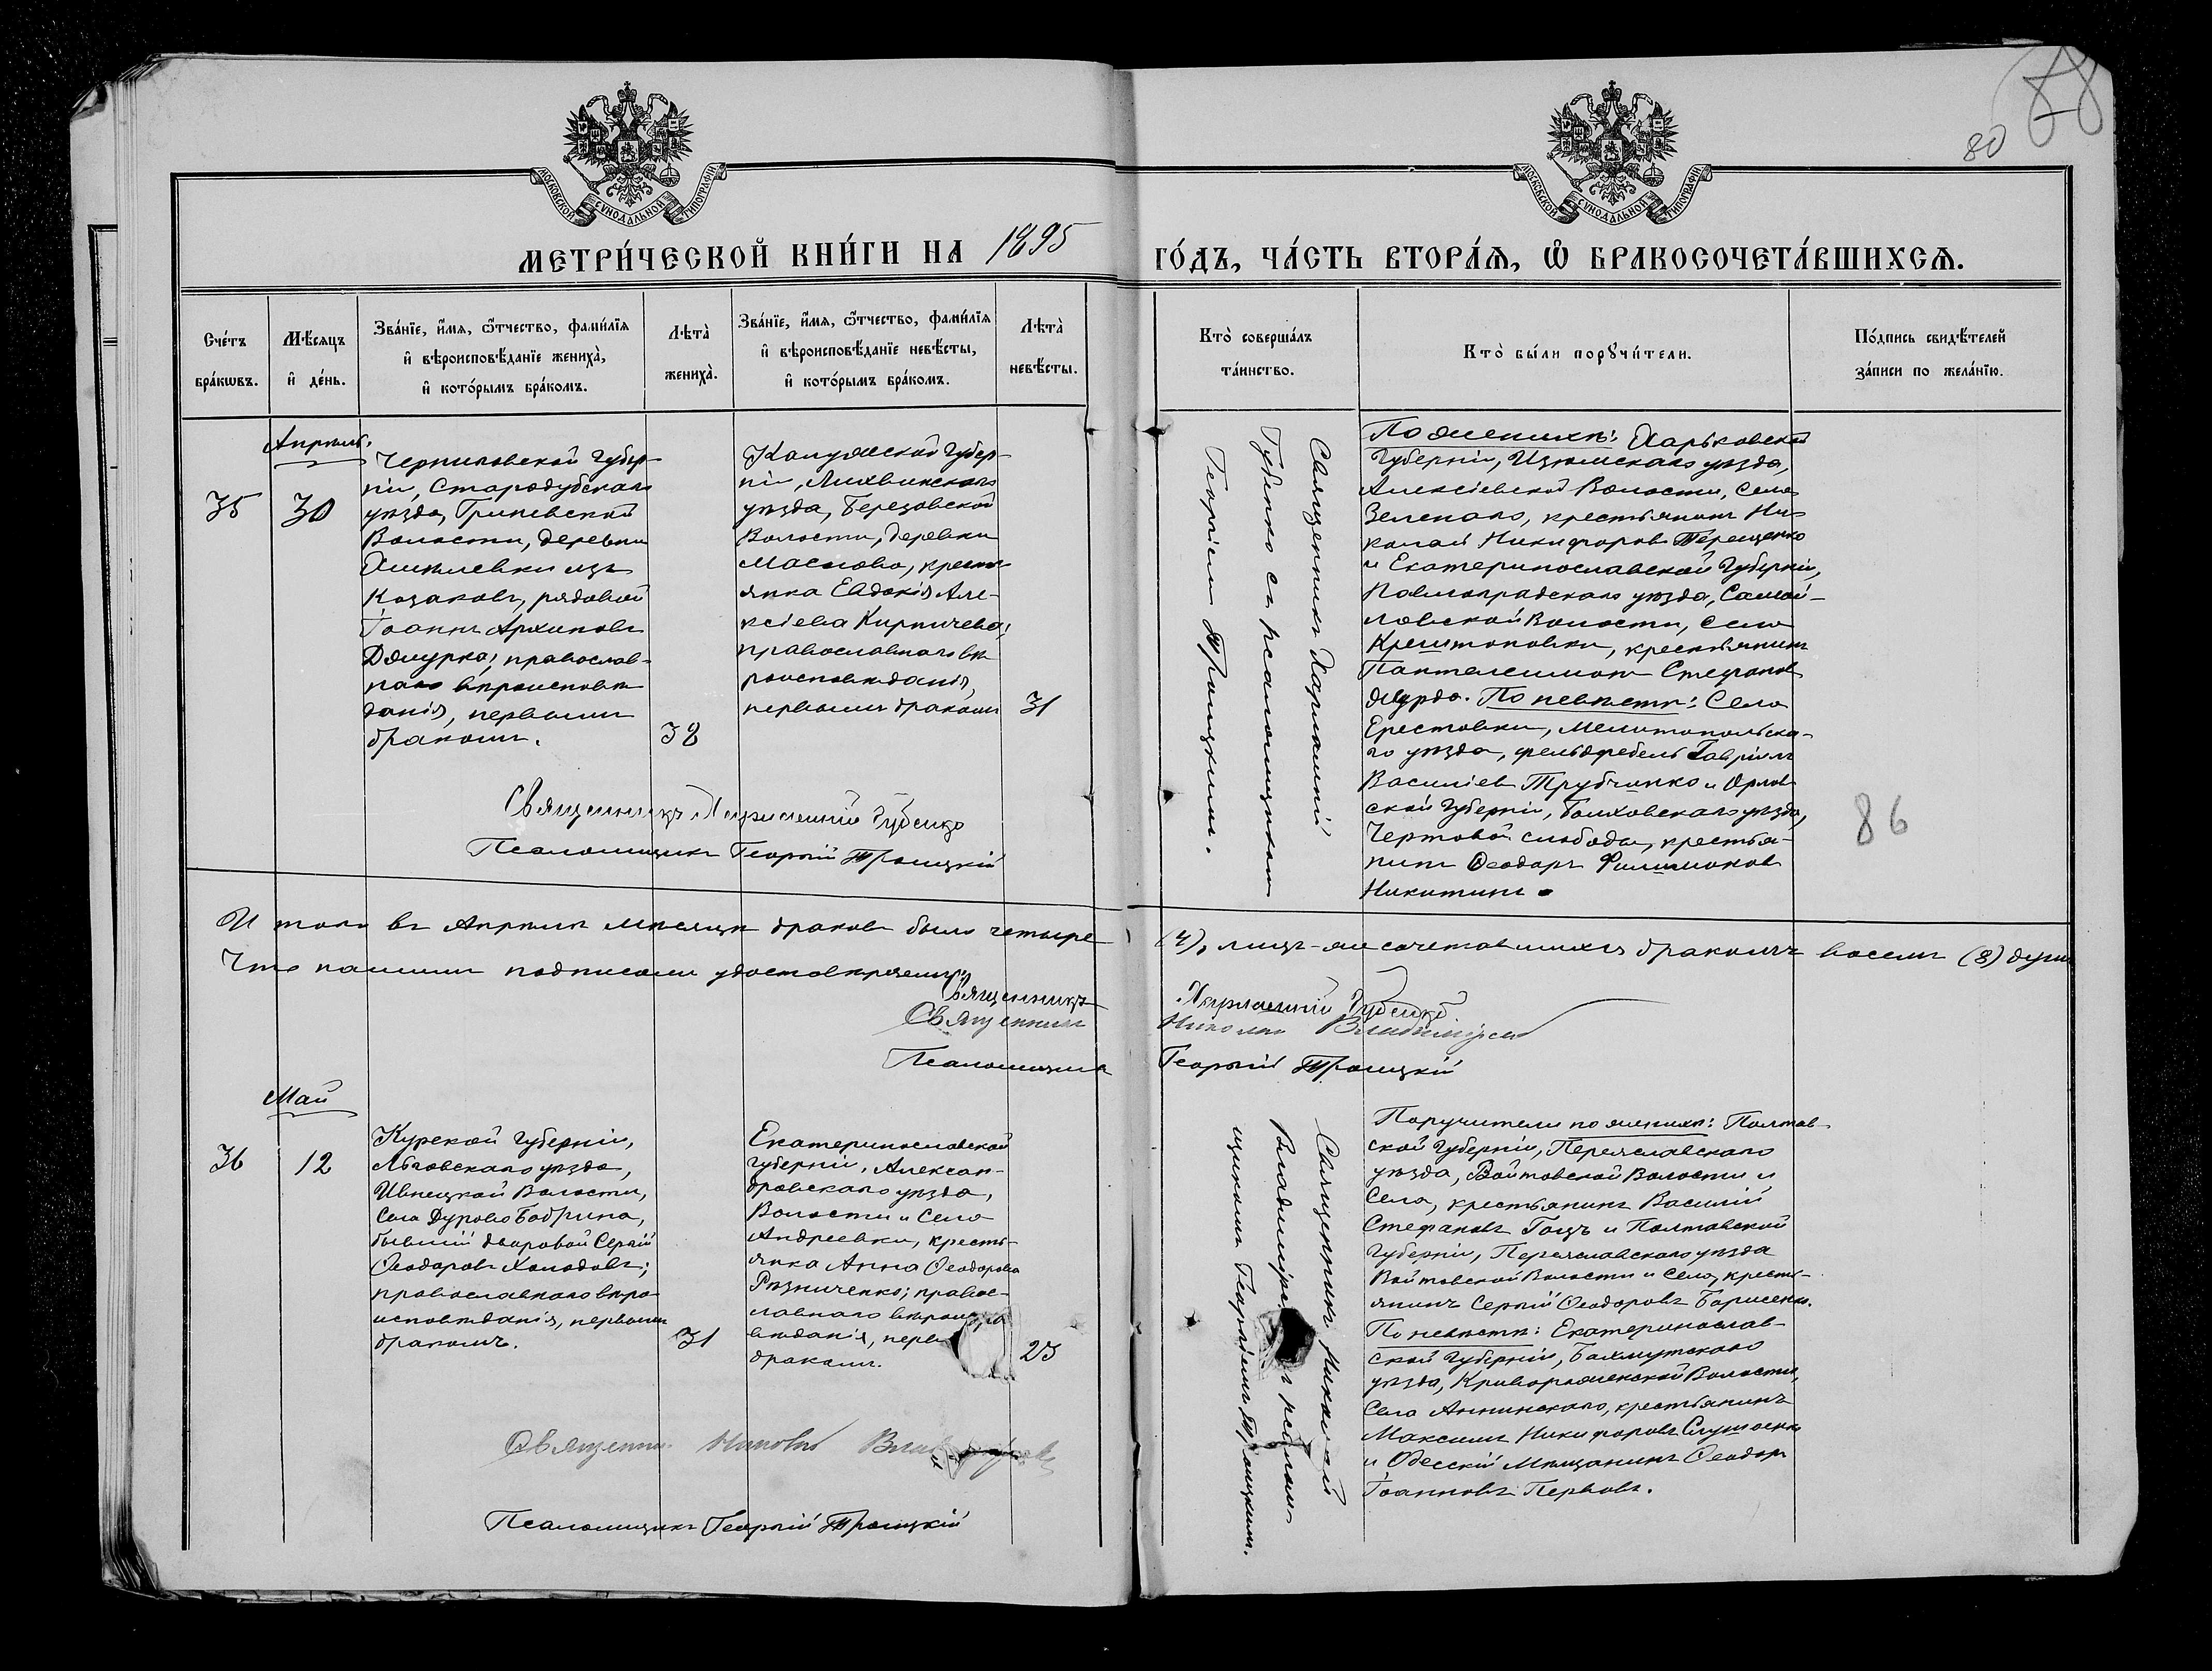 80
88
МОСКОВСКОЙ СѴНОДАЛЬНОЙ ТИПОГРАФІИ
МОСКОВСКОЙ СѴНОДАЛЬНОЙ ТИПОГРАФІИ
МЕТРИ́ЧЕСКОЙ КНИ́ГИ НА 1895 ГО́ДЪ, ЧА́СТЬ ВТОРА́Ѧ, Ѽ БРАКОСОЧЕТА́ВШИХСѦ.
Сче́тъ
бра́кѡвъ.
Мѣ́сяцъ
и҆ де́нь.
Зва́нїе, и҆́мѧ, ѻ҆́тчество, фами́лїѧ
и҆ вѣроисповѣ́данїе жениха̀,
и҆ кото́рымъ бра́комъ.
Лѣта̀
жениха̀.
Зва́нїе, и҆́мѧ, ѻ҆́тчество, фами́лїѧ
и҆ вѣроисповѣ́данїе невѣ́сты,
и҆ кото́рымъ бра́комъ.
Лѣта̀
невѣ́сты.
Кто̀ соверша́лъ
та́инство.
Кто̀ бы́ли порꙋчи́тели.
По́дпись свидѣ́телей
за́писи по жела́нїю.
Апрѣль.
35
30
Черниговской Губер-
ніи, Стародубскаго
уѣзда, Гриневской
Волости, деревни
Хмѣлевки изъ
Козаковъ, рядовой
Іоаннъ Архиповъ
Дямурка; православ-
наго вѣроисповѣ
данія, первымъ
бракомъ.
38
Калужской Губер-
ніи, Лихвинскаго
уѣзда, Березовской
Волости, деревни
Маслово, кресть
янка Евдокія Але-
ксіева Кирпичева;
православнаго вѣ
роисповѣданія,
первымъ бракомъ
31
Священникъ Харлампій
Губенко съ псаломщикомъ
Георгіемъ Троицкимъ.
По женихѣ: Харьковской
Губерніи, Изюмскаго уѣзда,
Алексѣевской Волости, Села
Зеленаго, крестьянинъ Ни-
колай Никифоровъ Терещенко
и Екатеринославской Губерніи,
Павлоградскаго уѣзда, Самой-
ловской Волости, Села
Крештоповки, крестьянинъ
Пантелеимонъ Стефановъ
Журда. По невѣстѣ: Села
Ерестовки, Мелитопольска-
го уѣзда, фельдфебель Гавріилъ
Василіевъ Трубчинко и Орлов
ской Губерніи, Болховскаго уѣзда,
Чертовой слободы, крестья-
нинъ Ѳеодоръ Филимоновъ
Никитинъ.
86
Священникъ Харлампій Губенко
Псаломщикъ Георгій Троицкій
Итого въ Апрѣлѣ мѣсяцѣ браковъ было четыре (4), лицъ-же сочетавшихся бракомъ восемь (8) душъ
Что нашими подписами удостовѣряемъ:
Священникъ Харлампій Губенко
Священникъ Николай Владиміровъ
Псаломщикъ Георгій Троицкій
Май
36
12
Курской Губерніи,
Льговскаго уѣзда,
Ивницкой Волости,
Села Дурово Бобрика,
бывшій дворовой Сергій
Ѳеодоровъ Холодовъ;
православнаго вѣро
исповѣданія, первымъ
бракомъ.
31
Екатеринославской
губерніи, Алексан-
дровскаго уѣзда,
Волости и Села
Андреевки, кресть-
янка Анна Ѳеодорова
Рѣзниченко; правос-
лавнаго вѣроиспо
вѣданія, перв
бракомъ.
23
Священникъ Николай
Владиміръ псалом-
щикомъ Георгіемъ Троицкимъ.
Поручители по женихѣ: Полтав-
ской Губерніи, Переяславскаго
уѣзда, Войтовской Волости и
Села, крестьянинъ Василій
Стефановъ Гоцъ и Полтавской
Губерніи, Переяславскаго уѣзда
Войтовской Волости и Села, кресть-
янинъ Сергій Ѳеодоровъ Борисенко.
По невѣстѣ: Екатеринослав-
ской Губерніи, Бахмутскаго
уѣзда, Криворожской Волости,
Села Аннинскаго, крестьянинъ
Максимъ Никифоровъ
и Одесскій Мѣщанинъ Ѳеодоръ
Іоанновъ Перковъ.
Священникъ Николай
Псаломщикъ Георгій Троицкій